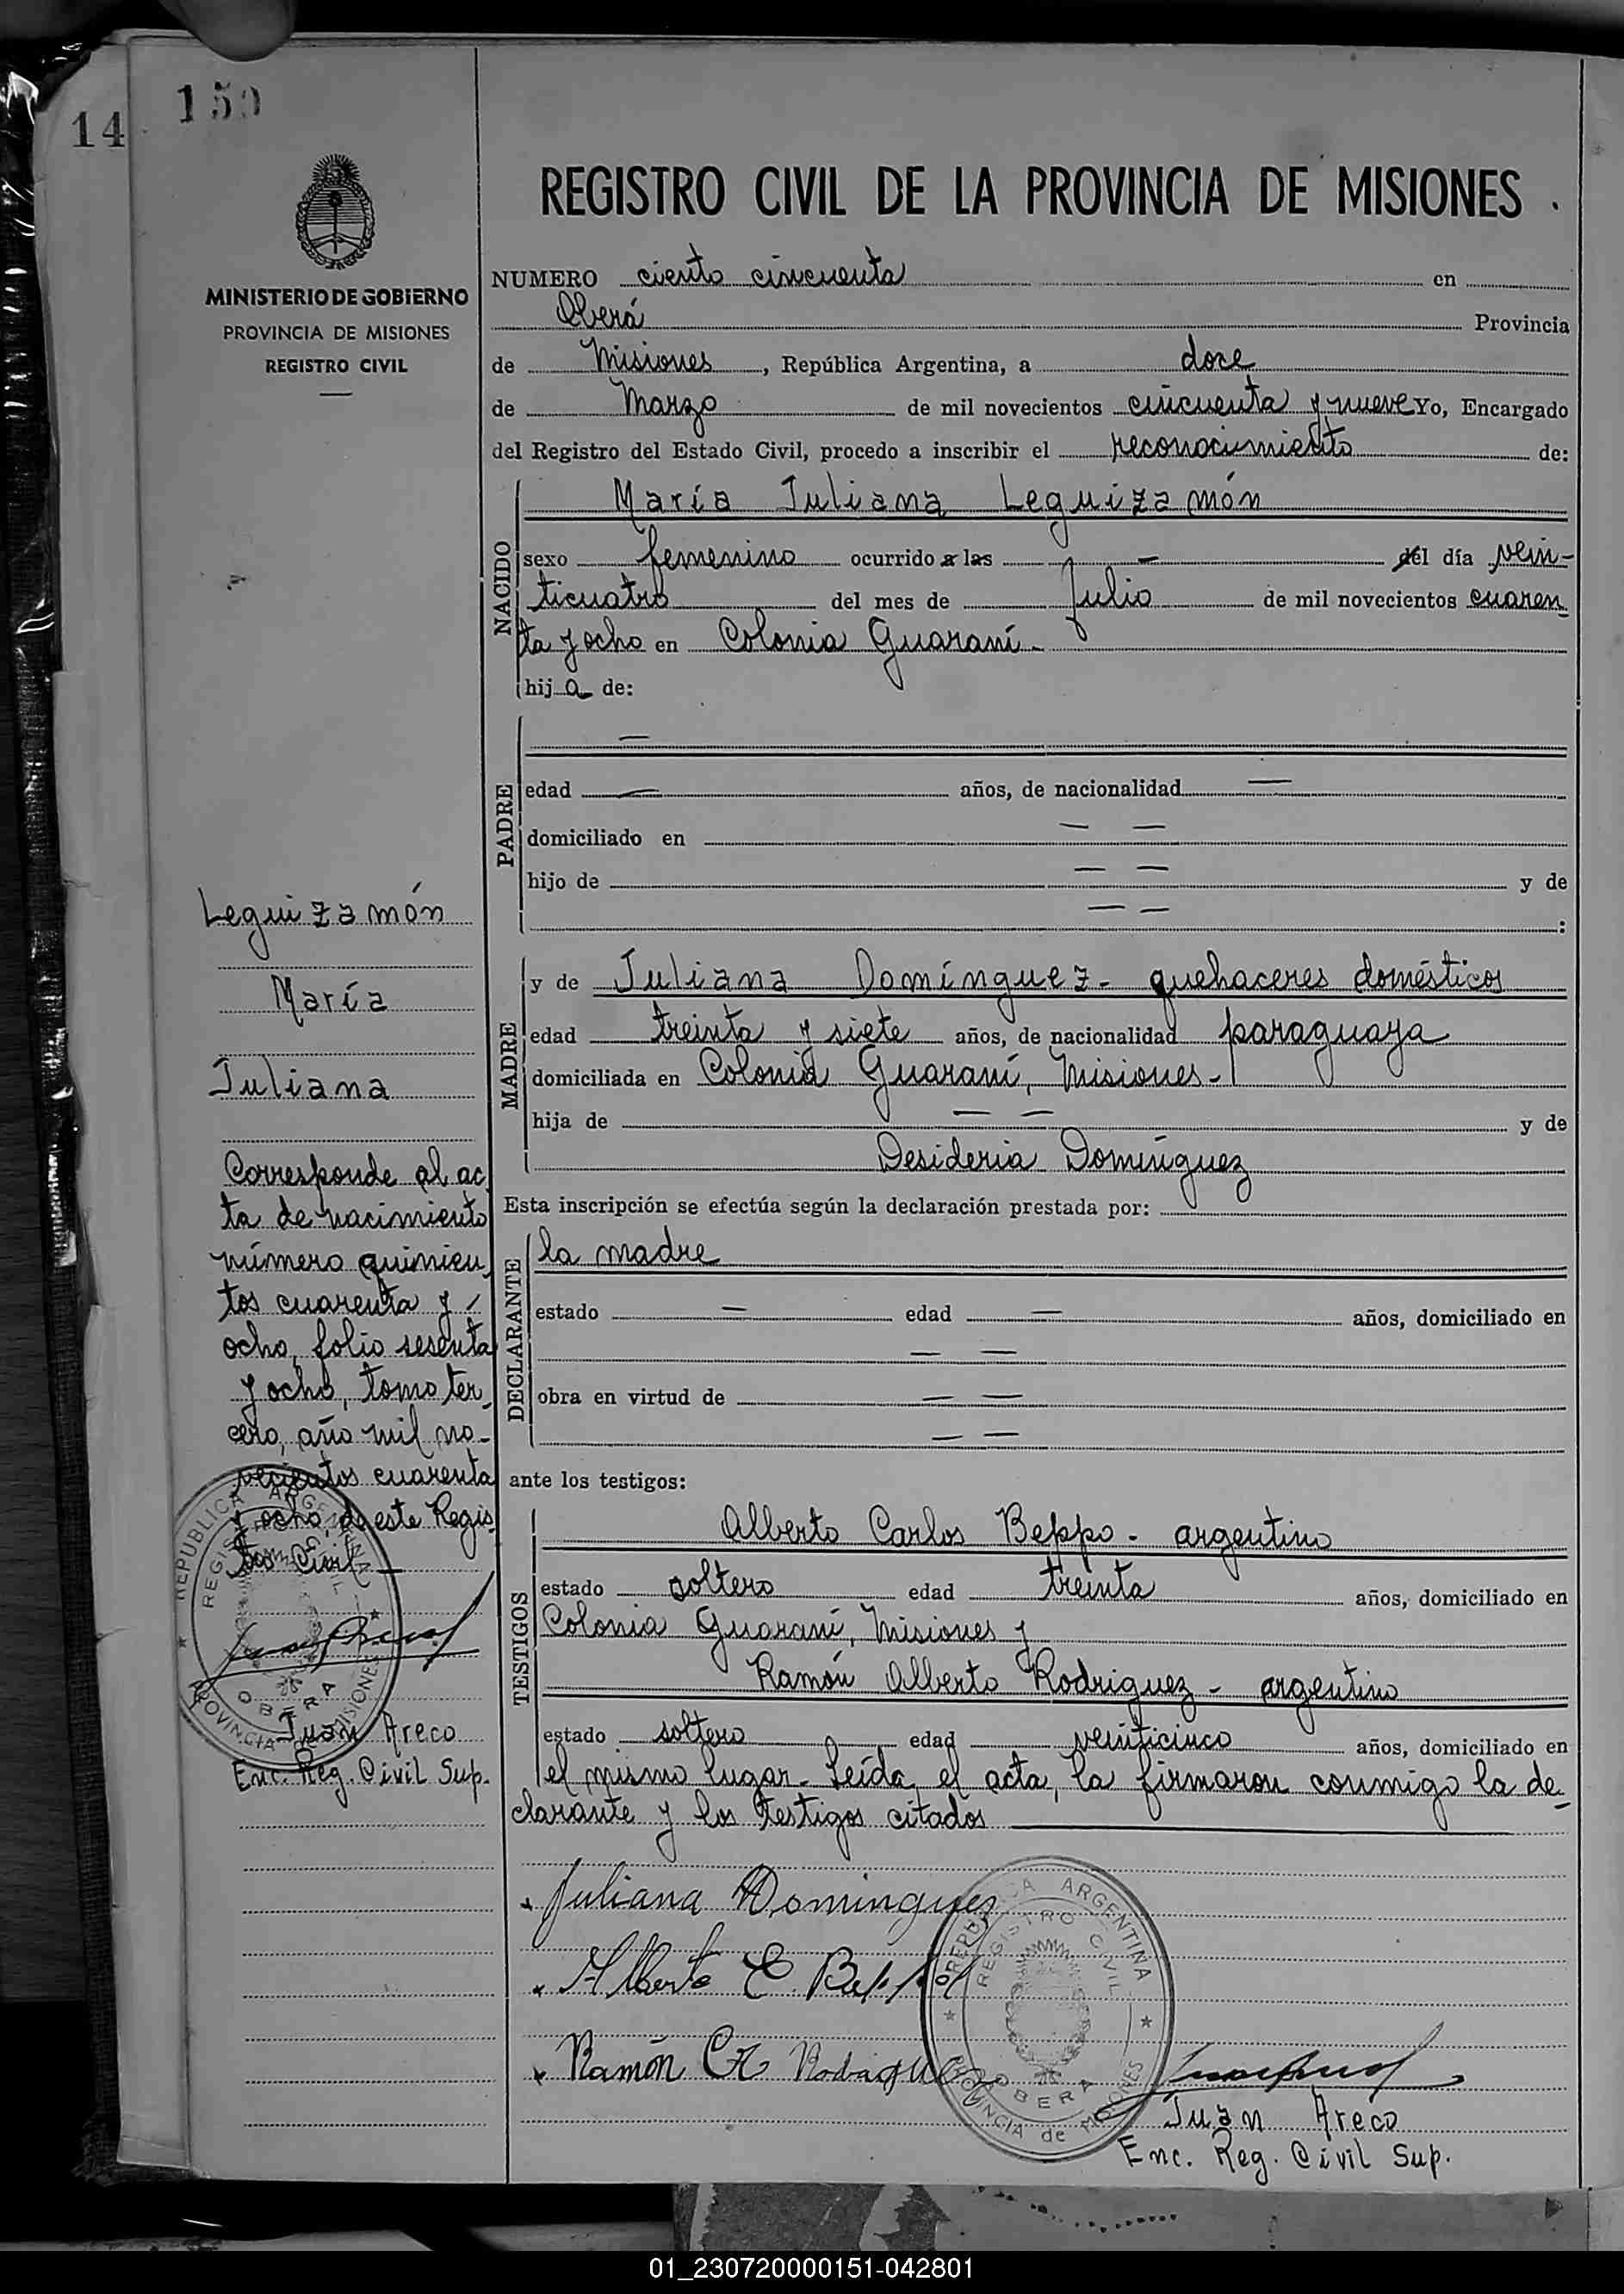 14
150
MINISTERIO DE GOBIERNO
PROVINCIA DE MISIONES
REGISTRO CIVIL
REGISTRO CIVIL DE LA PROVINCIA DE MISIONES
NUMERO ciento cincuenta en
Oberá Provincia
de Misiones, República Argentina, a doce
de Marzo de mil novecientos cincuenta y nueve Yo, Encargado
del Registro del Estado Civil, procedo a inscribir el reconocimiento de:
NACIDO
María Juliana Leguizamón
sexo femenino ocurrido a las — del día vein-
ticuatro del mes de Julio de mil novecientos cuaren-
ta y ocho en Colonia Guaraní-
hija de:
PADRE
—
edad — años, de nacionalidad —
domiciliado en — —
hijo de — — y de
— — :
MADRE
y de Juliana Domínguez- quehaceres domésticos
edad treinta y siete años, de nacionalidad paraguaya
domiciliada en Colonia Guaraní, Misiones-
hija de — — y de
Desideria Domínguez
Esta inscripción se efectúa según la declaración prestada por:
DECLARANTE
la madre
estado — edad — años, domiciliado en
— —
obra en virtud de — —
— —
ante los testigos:
TESTIGOS
Alberto Carlos Beppo- argentino
estado soltero edad treinta años, domiciliado en
Colonia Guaraní, Misiones y
Ramón Alberto Rodriguez- argentino
estado soltero edad veinticinco años, domiciliado en
el mismo lugar- Leída el acta, la firmaron conmigo la de-
clarante y los testigos citados
Juliana Dominguez
Alberto C. Beppo
Ramón A Rodriguez
REPUBLICA ARGENTINA
REGISTRO CIVIL
OBERA
PROVINCIA de MISIONES
Juan Areco
Enc. Reg. Civil Sup.
Leguizamón
María
Juliana
Corresponde al ac-
ta de nacimiento
número quinien-
tos cuarenta y
ocho, folio sesenta
y ocho, tomo ter-
cero, año mil no-
vecientos cuarenta
y ocho, de este Regis-
tro Civil
REPUBLICA ARGENTINA
REGISTRO CIVIL
OBERA
PROVINCIA de MISIONES
Juan Areco
Enc. Reg. Civil Sup.
01_230720000151-042801